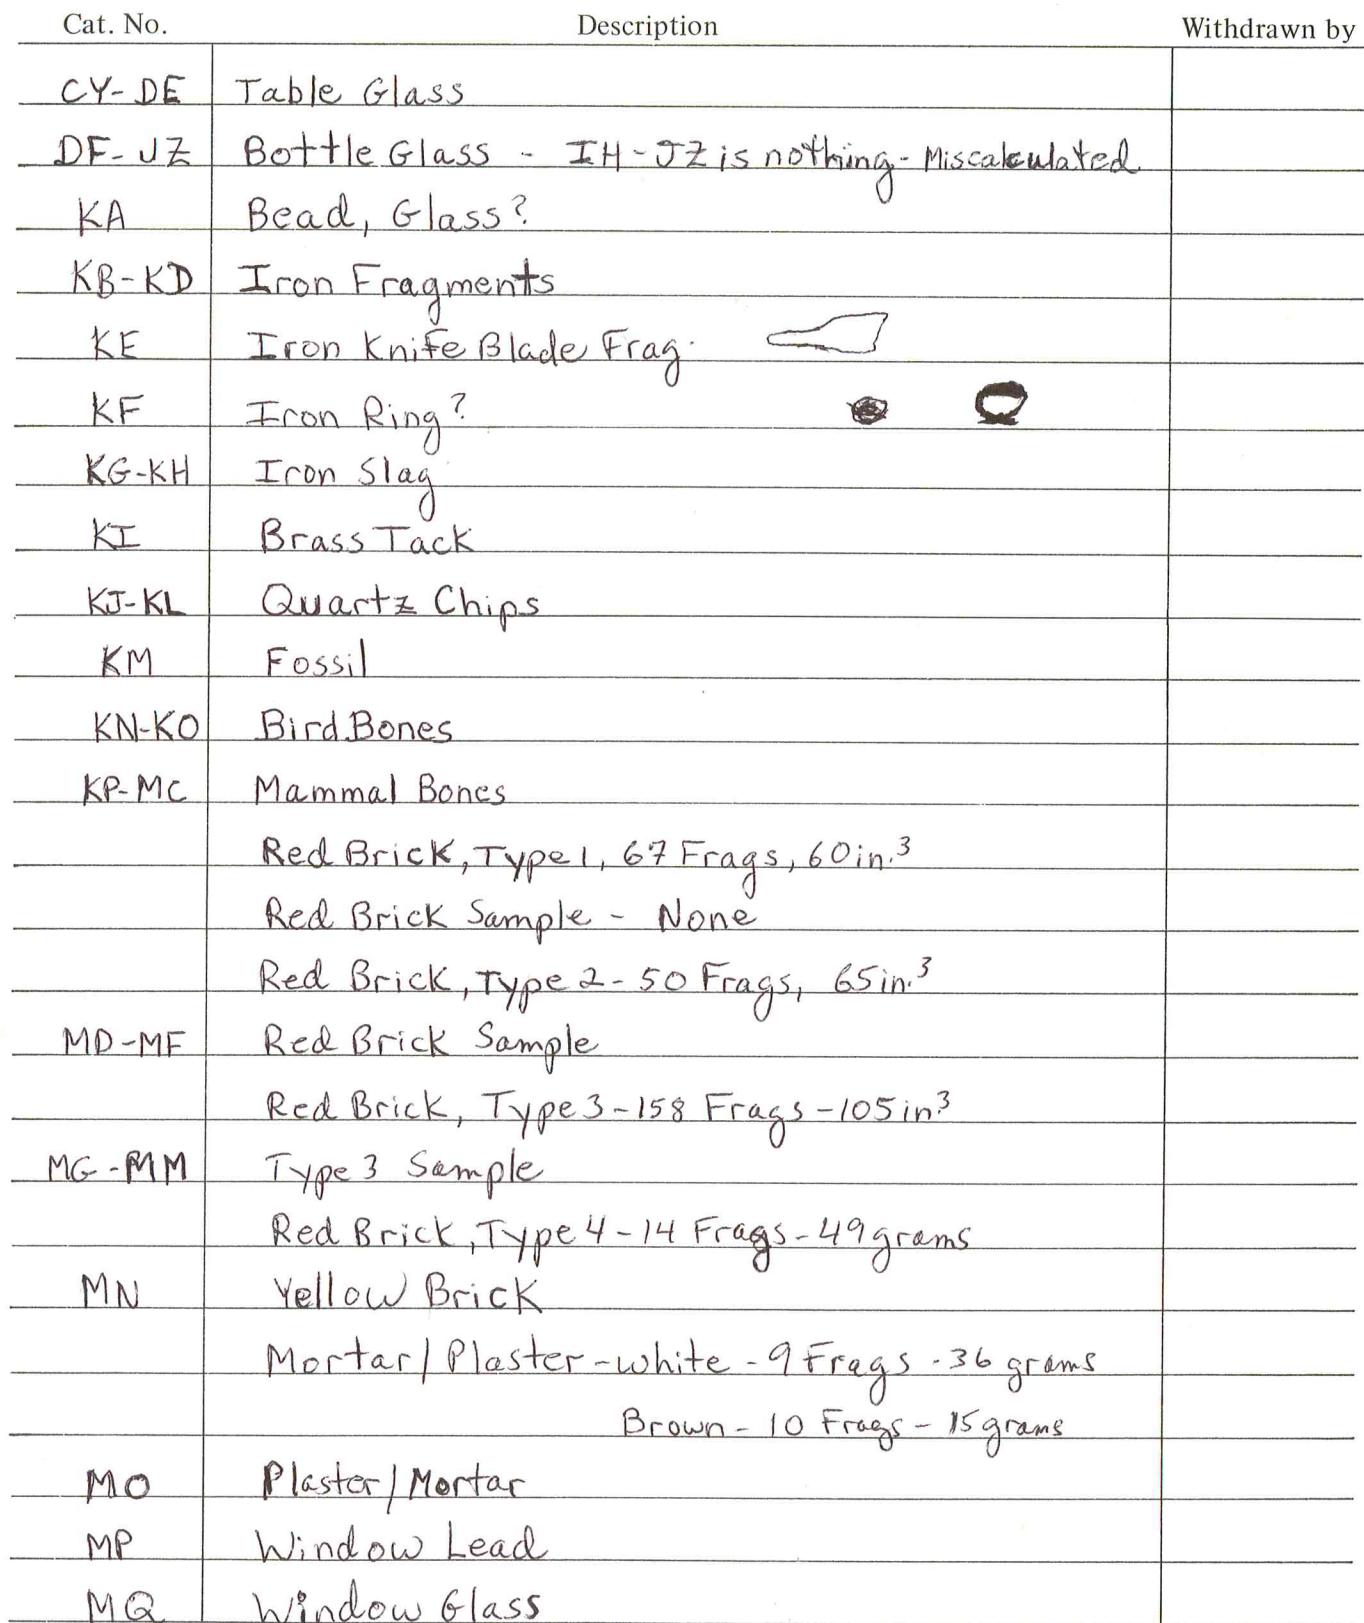 Cat. No. Description Withdrawn by
CY-DE Table Glass
DF-JZ Bottle Glass - IH-JZ is nothing - Miscalculated
KA Bead, Glass?
KB-KD Iron Fragments
KE Iron Knife Blade Frag.
KF Iron Ring?
KG-KH Iron Slag
KI Brass Tack
KJ-KL Quartz Chips
KM Fossil
KN-KO Bird Bones
KP-MC Mammal Bones
Red Brick, Type 1, 67 Frags, 60 in.³
Red Brick Sample - None
Red Brick, Type 2 - 50 Frags, 65 in.³
MD-MF Red Brick Sample
Red Brick, Type 3 - 158 Frags - 105 in³
MG-MM Type 3 Sample
Red Brick, Type 4 - 14 Frags - 49 grams
MN Yellow Brick
Mortar/Plaster - white - 9 Frags - 36 grams
Brown - 10 Frags - 15 grams
MO Plaster/Mortar
MP Window Lead
MQ Window Glass